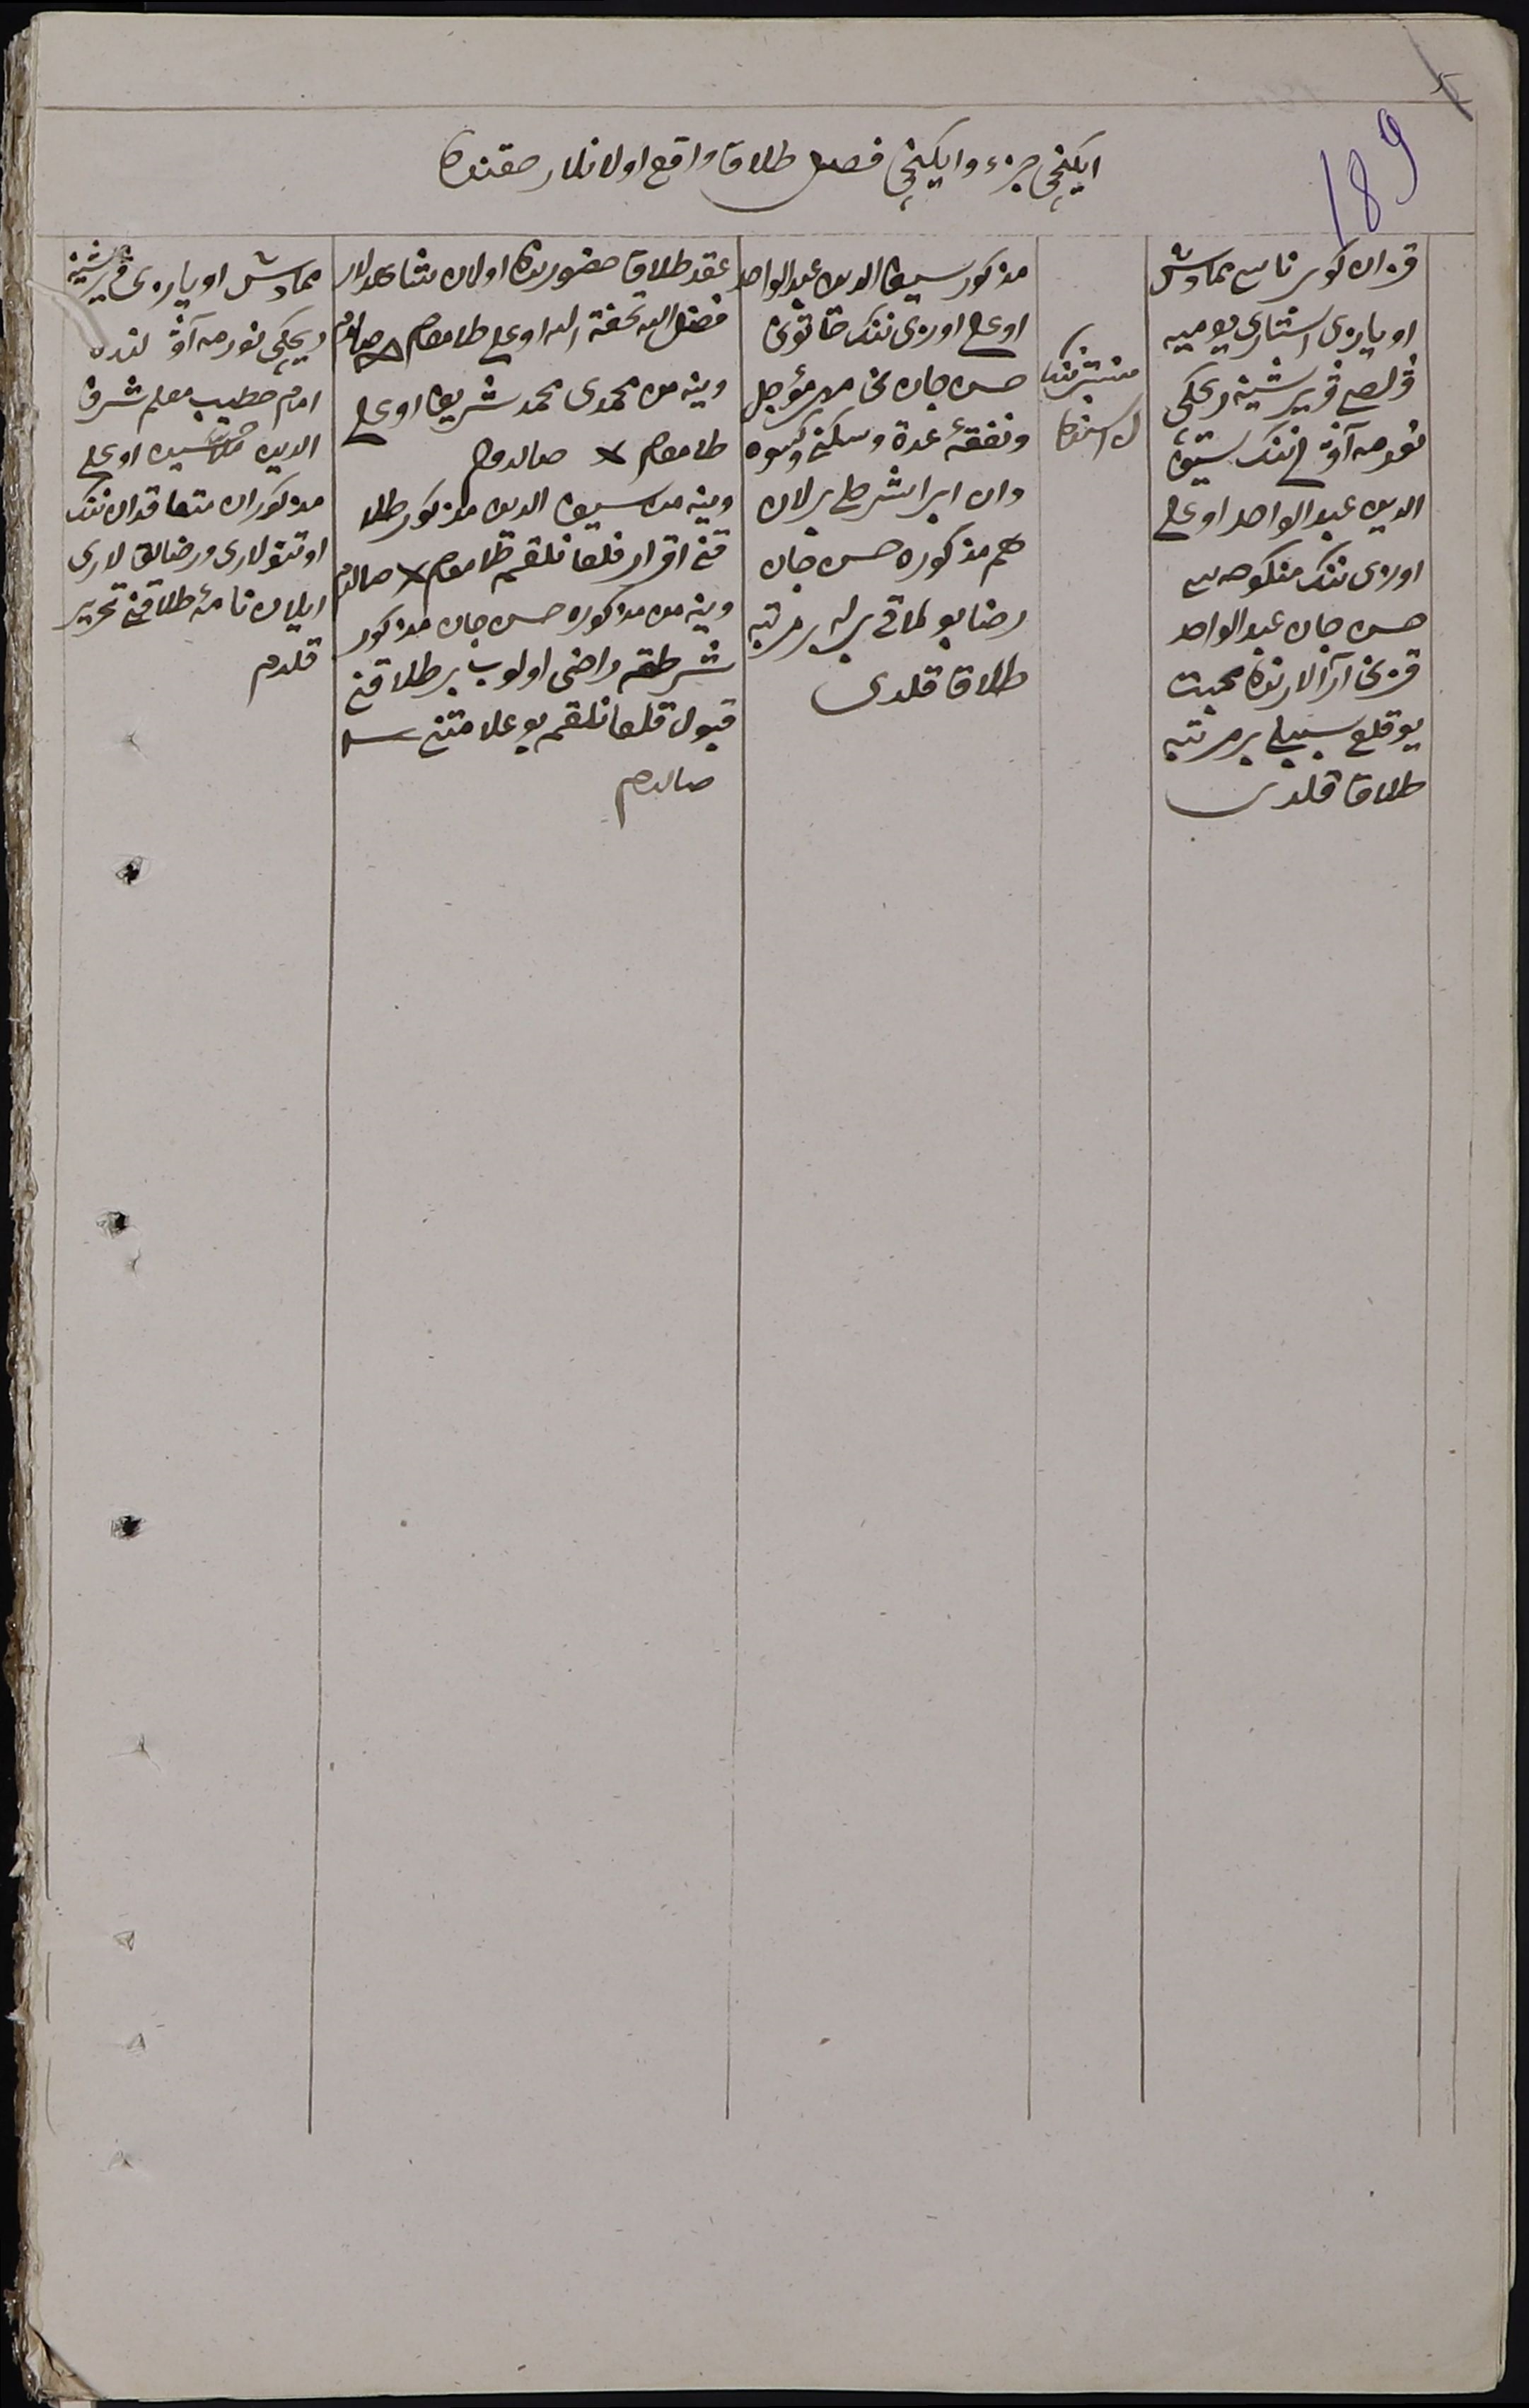 189
ایکنچی جزء و ایکنچی فصل طلاق واقع اولانلار حقنده
قزان کوبرناسی ممادش
اویازی استاری یومیه
ولصی قریه سینه ریچکی
نورمه آولی ننک سیف
الدین عبدالواحد اوغلی
اوزی ننک منکوحه سی
حسن جان عبدالواحد
قزینی آرالارنده محبت
یوقلغی سببلی بر مرتبه
طلاق قلدی
مذکور سیف الدین عبدالواحد
اوغلی اوزی ننک خاتونی
حسن جان نی مهر مؤجل
و نفقهٔ عدة و سکنی و کسوه
دان ابرا شرطی برلان
هم مذکوره حسن جان
رضا بولماقی برله بر مرتبه
طلاق قلدی
عقد طلاق حضورنده اولان شاهدلار
فضل الله تحفة الله اوغلی طامغام صالدم
وینه من محمدی محمد شریف اوغلی
طامغام × صالدم
وینه من سیف الدین مذکور طلا
قنی اقرار قلغانلقمه طامغام × صالدم
وینه من مذکوره حسن جان مذکور
شرطقه راضی اولوب بر طلاقنی
قبول قلغانلقمه بو علامتنی
صالدم
ممادش اویازی قریه سینه
ریچکی نورمه آولنده
امام خطیب معلم شرف
الدین اوغلی
مذکوران متعاقدان ننک
اوتنولاری و رضالق لاری
ایلان نامهٔ طلاقنی تحریر
قلدم